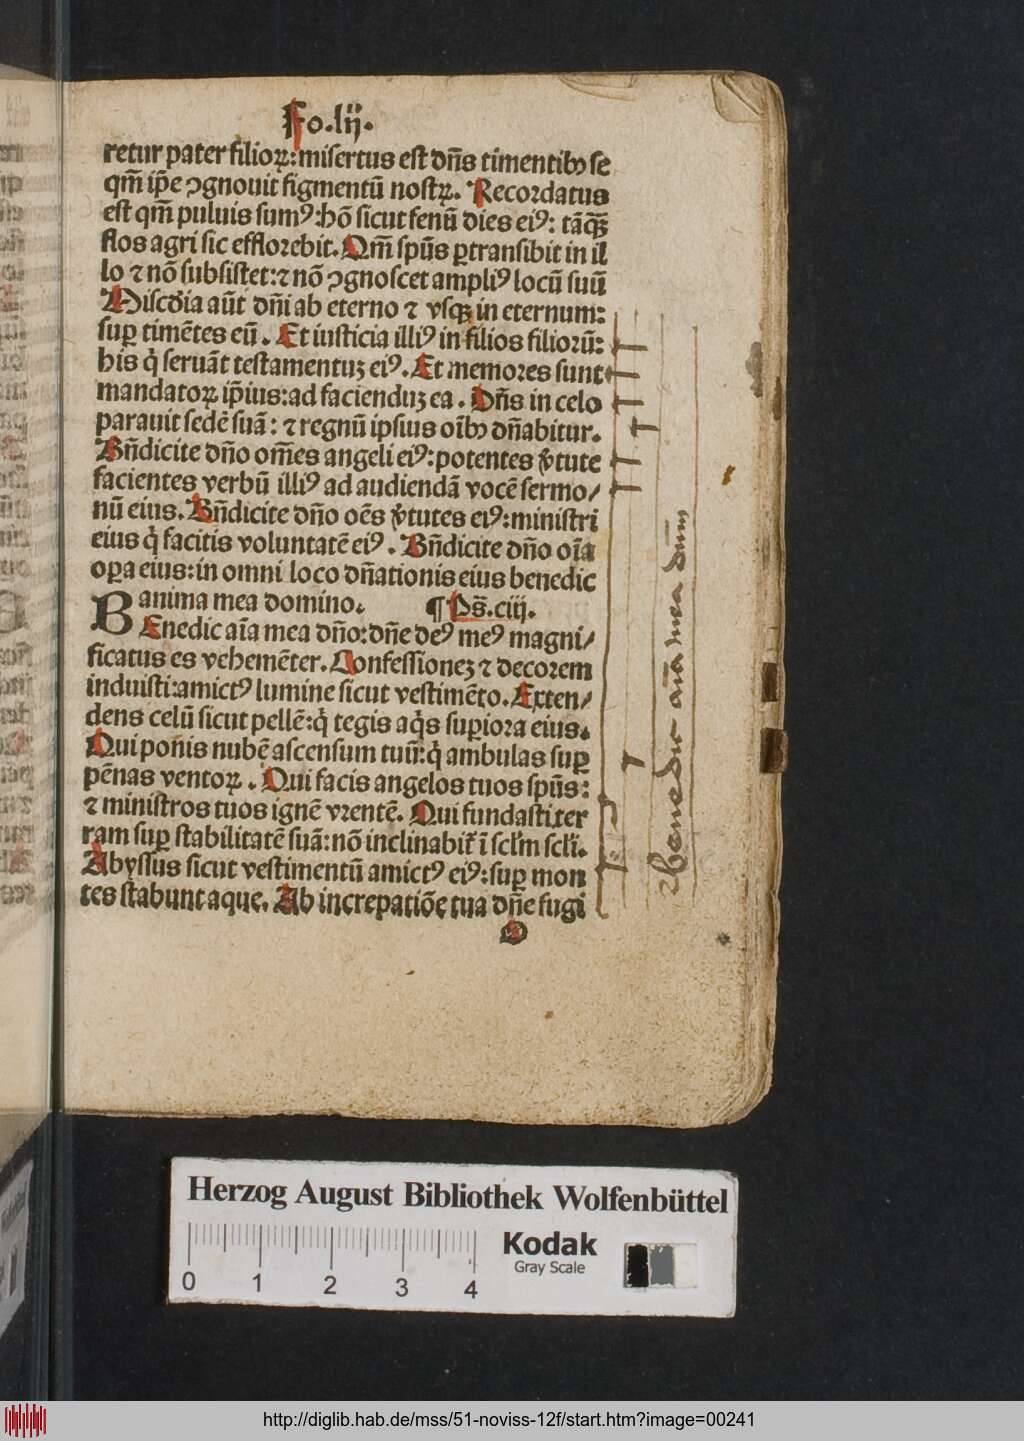 Fo.lij.
retur pater filioꝝ: misertus est dn̄s timentibꝰ se
qm̄ ip̄e ꝯgnouit figmentū nostꝝ. Recordatus
est qm̄ puluis sumꝰ: hō sicut fenū dies eiꝰ: tāꝙ̄
flos agri sic efflorebit. Qm̄ sp̄us ꝑtransibit in il
lo ⁊ nō subsistet: ⁊ nō ꝯgnoscet ampliꝰ locū suū
Misc̄dia aūt dn̄i ab eterno ⁊ vsqꝫ in eternum:
suꝑ timētes eū. Et iusticia illiꝰ in filios filiorū:
his q̇ seruāt testamentuꝫ eiꝰ. Et memores sunt
mandatoꝝ ip̄ius: ad facienduꝫ ea. Dn̄s in celo
parauit sedē suā: ⁊ regnū ipsius oībꝰ dn̄abitur.
Bn̄dicite dn̄o om̄es angeli eiꝰ: potentes v̇tute
facientes verbū illiꝰ ad audiendā vocē sermo/
nū eius. Bn̄dicite dn̄o oēs v̇tutes eiꝰ: ministri
eius q̇ facitis voluntatē eiꝰ. Bn̄dicite dn̄o oīa
oꝑa eius: in omni loco dn̄ationis eius benedic
anima mea domino. ¶ Ps̄.ciij.
BEnedic aīa mea dn̄o: dn̄e deꝰ meꝰ magni/
ficatus es vehemēter. Confessioneꝫ ⁊ decorem
induisti: amictꝰ lumine sicut vestimēto. Exten/
dens celū sicut pellē: q̇ tegis aq̇s suꝑiora eius.
Qui ponis nubē ascensum tuū: q̇ ambulas suꝑ
pēnas ventoꝝ. Qui facis angelos tuos sp̄us:
⁊ ministros tuos ignē vrentē. Qui fundasti ter
ram suꝑ stabilitatē suā: nō inclinabit̄ ī scl̄m scl̄i.
Abyssus sicut vestimentū amictꝰ eiꝰ: suꝑ mon
tes stabunt aque. Ab increpatiōe tua dn̄e fugi
Benedic aīa mea dnm̄
Herzog August Bibliothek Wolfenbüttel
Kodak
Gray Scale
0 1 2 3 4
http://diglib.hab.de/mss/51-noviss-12f/start.htm?image=00241